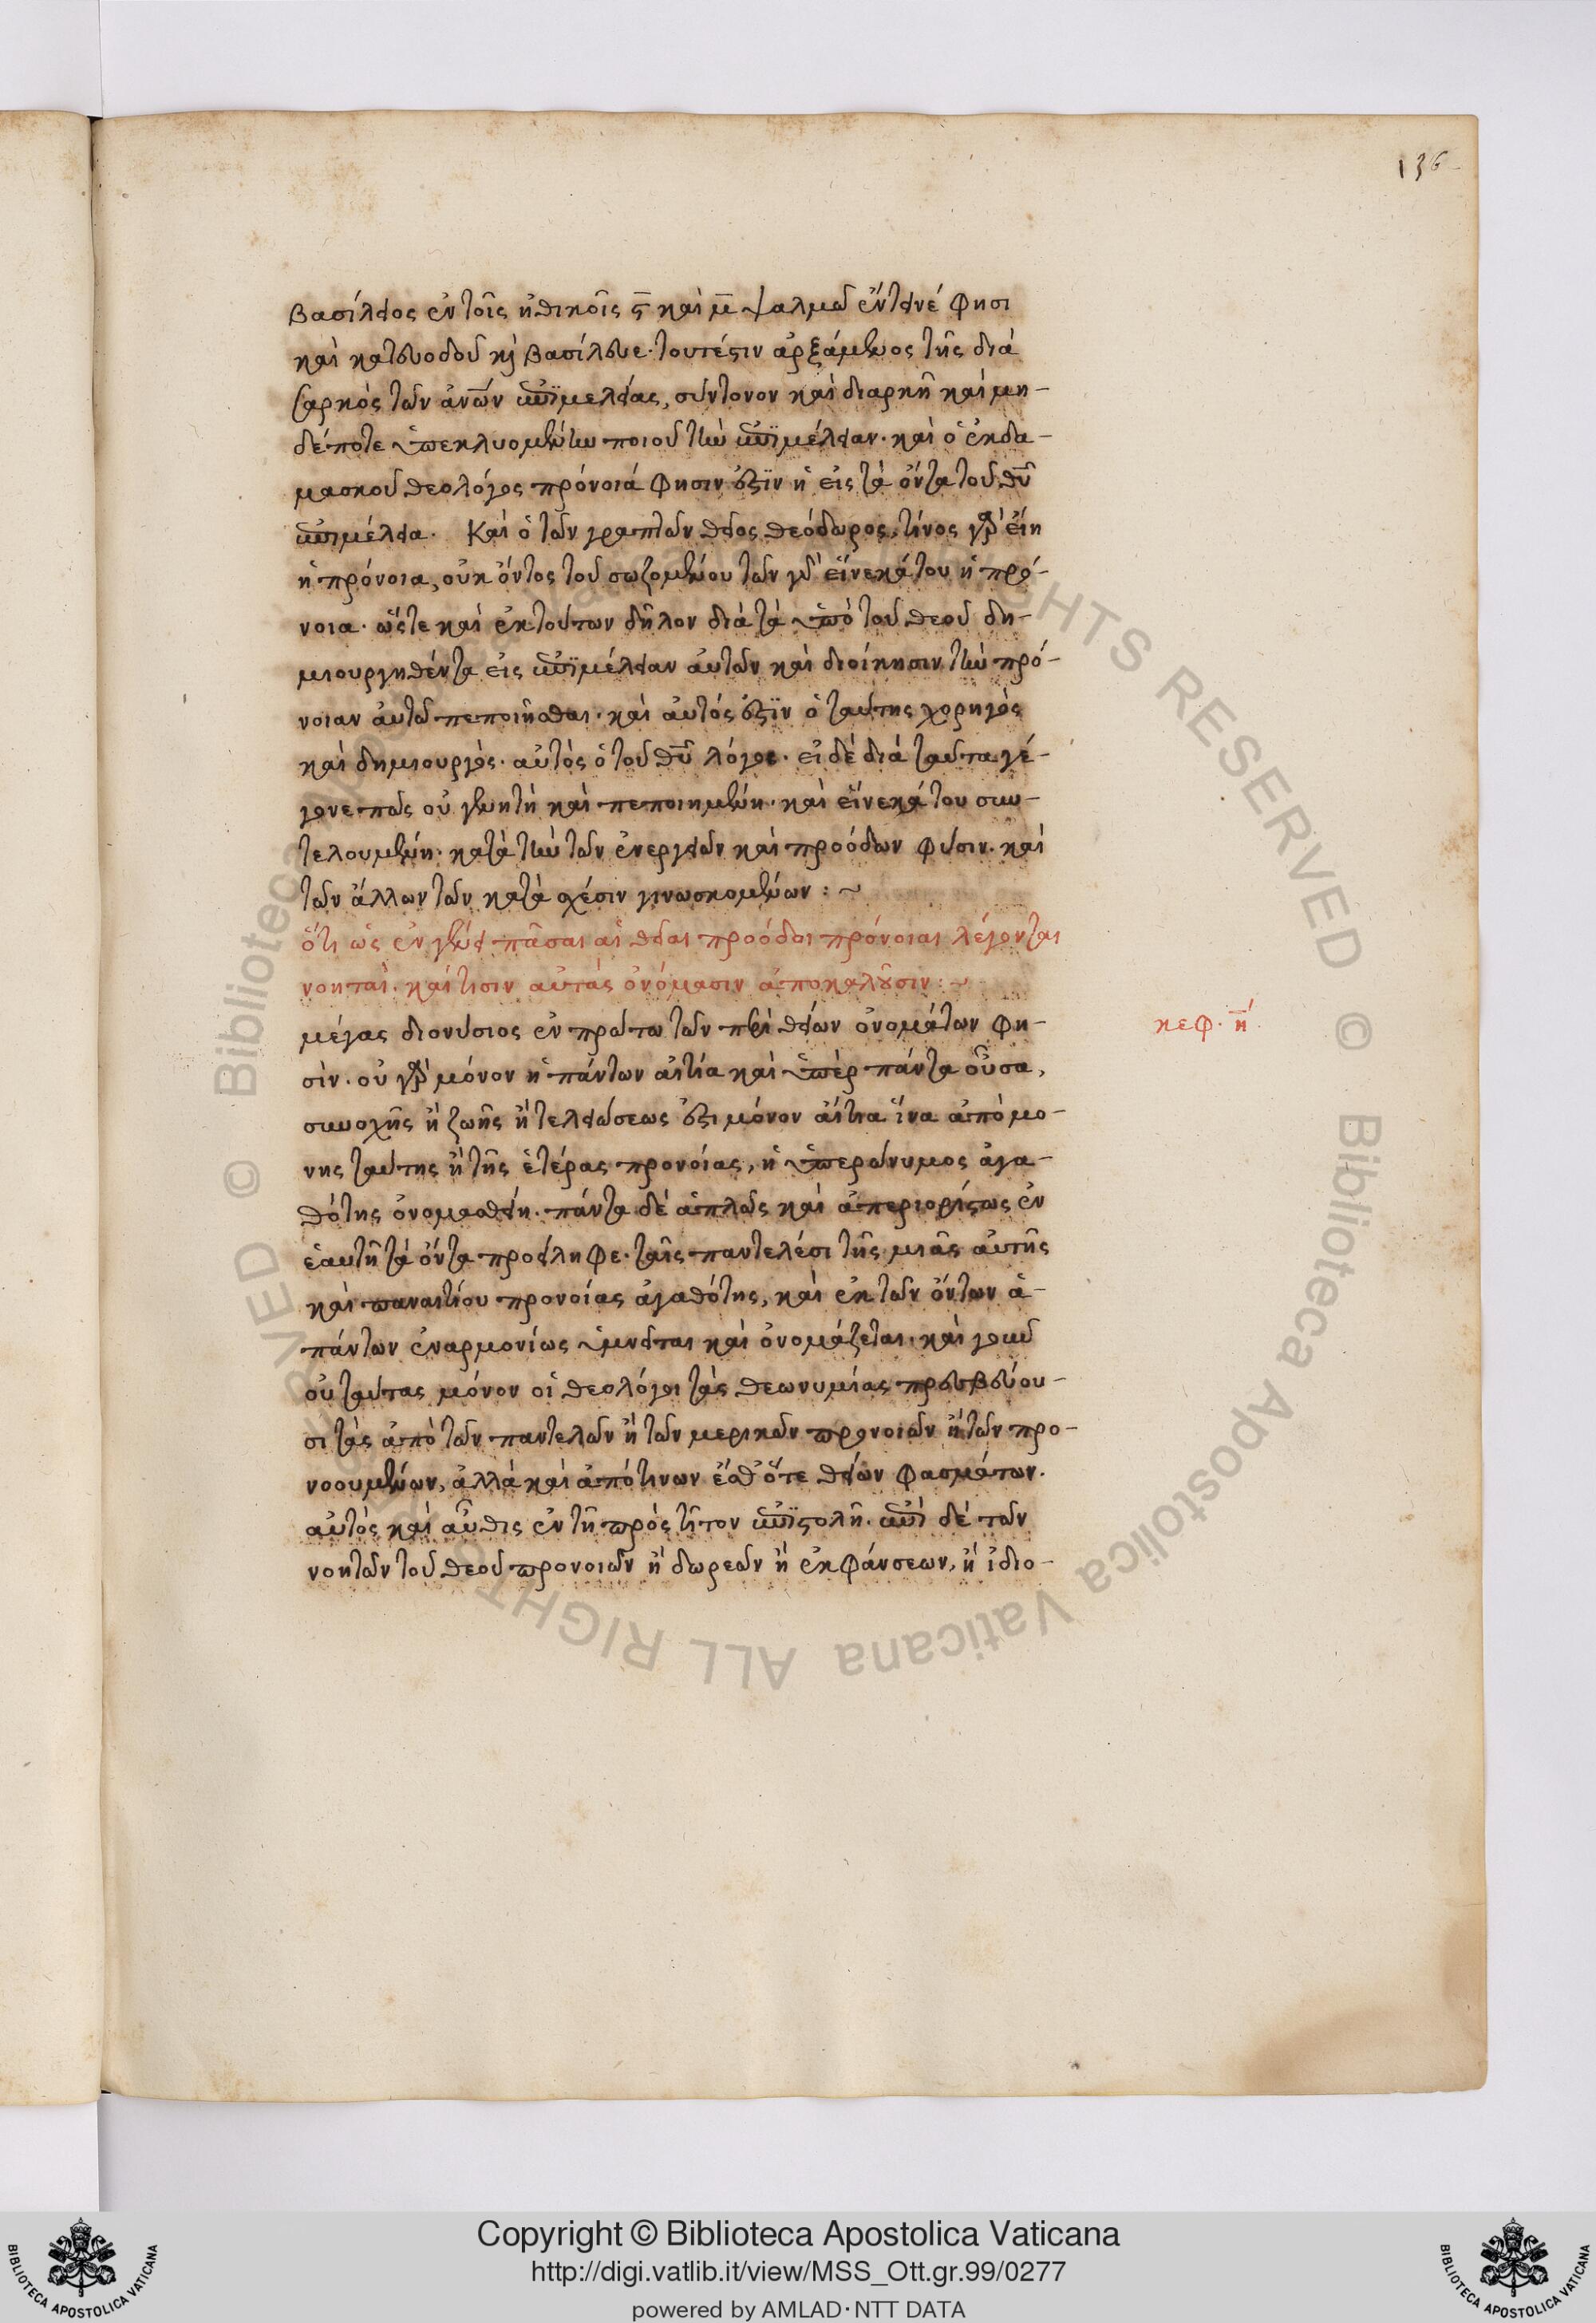 136
βασίλειος ἐν τοῖς ἠθικοῖς ϛ̅ καὶ μ̅ ψαλμῶ ἔντεινέ φησι
καὶ κατευοδοῦ κ(αὶ) βασίλευε· τουτέστιν ἀρξάμενος τῆς διὰ
σαρκὸς τῶν ἀν̅ων ἐπϊμελείας, σύντονον καὶ διαρκῆ καὶ μη-
δέποτε ὑπεκλυομένην ποιοῦ τὴν ἐπϊμέλειαν· καὶ ὁ ἐκ δα-
μασκοῦ θεολόγος πρόνοιά φησιν ἐστὶν ἡ εἰς τὰ ὄντα τοῦ θ̅υ
ἐπιμέλεια. Καὶ ὁ τῶν γραπτῶν θεῖος θεόδωρος, τίνος γὰρ εἴη
ἡ πρόνοια, οὐκ ὄντος τοῦ σωζομένου τῶν γὰρ εἵνεκά του ἡ πρό-
νοια· ὥστε καὶ ἐκ τούτων δῆλον διὰ τὰ ὑπὸ τοῦ θεοῦ δη-
μιουργηθέντα εἰς ἐπϊμέλειαν αὐτῶν καὶ διοίκησιν τὴν πρό-
νοιαν αὐτῶ πεποιῆσθαι· καὶ αὐτός ἐστϊν ὁ ταύτης χορηγὸς
καὶ δημιουργὸς· αὐτὸς ὁ τοῦ θ̅υ λόγος· εἰ δὲ διὰ ταῦτα γέ-
γονε πῶς οὐ γενητὴ καὶ πεποιημένη· καὶ εἵνεκά του συν-
τελουμένη· κατὰ τὴν τῶν ἐνεργειῶν καὶ προόδων φύσιν· καὶ
τῶν ἄλλων τῶν κατὰ σχέσιν γινωσκομένων : ~
ὅτι ὡς ἐν γένει πᾶσαι αἱ θεῖαι προόδοι πρόνοιαι λέγονται
νοηταὶ· καί τισιν αὐτὰς ὀνόμασιν ἀποκαλοῦσιν : ~
κεφ. η̅
μέγας διονύσιος ἐν πρώτω τῶν περὶ θείων ὀνομάτων φη-
σὶν· οὐ γὰρ μόνον ἡ πάντων αἰτία καὶ ὑπὲρ πάντα οὖσα,
συνοχῆς ἢ ζωῆς ἢ τελειώσεως ἐστι μόνον αἴτια ἵνα ἀπὸ μό-
νης ταύτης ἢ τῆς ἑτέρας προνοίας, ἡ ὑπερώνυμος ἀγα-
θότης ὀνομασθείη· πάντα δὲ ἁπλῶς καὶ ἀπεριορίστως ἐν
ἑαυτῆ τὰ ὄντα προείληφε· ταῖς παντελέσι τῆς μιᾶς αὐτῆς
καὶ παναιτίου προνοίας ἀγαθότης, καὶ ἐκ τῶν ὄντων ἁ-
πάντων ἐναρμονίως ὑμνεῖται καὶ ὀνομάζεται· καὶ γοῦν
οὐ ταύτας μόνον οἱ θεολόγοι τὰς θεωνυμίας πρεσβεύου-
σι τὰς ἀπὸ τῶν παντελῶν ἢ τῶν μερικῶν προνοιῶν ἢ τῶν προ-
νοουμένων, ἀλλὰ καὶ ἀπό τινων ἔσθ' ὅτε θείων φασμάτων.
αὐτὸς καὶ αὖθις ἐν τῆ πρὸς τίτον ἐπϊστολῆ· ἐπὶ δὲ τῶν
νοητῶν τοῦ θεοῦ προνοιῶν ἢ δωρεῶν ἢ ἐκφάνσεων, ἢ ἰδιο-
Copyright © Biblioteca Apostolica Vaticana
http://digi.vatlib.it/view/MSS_Ott.gr.99/0277
powered by AMLAD·NTT DATA